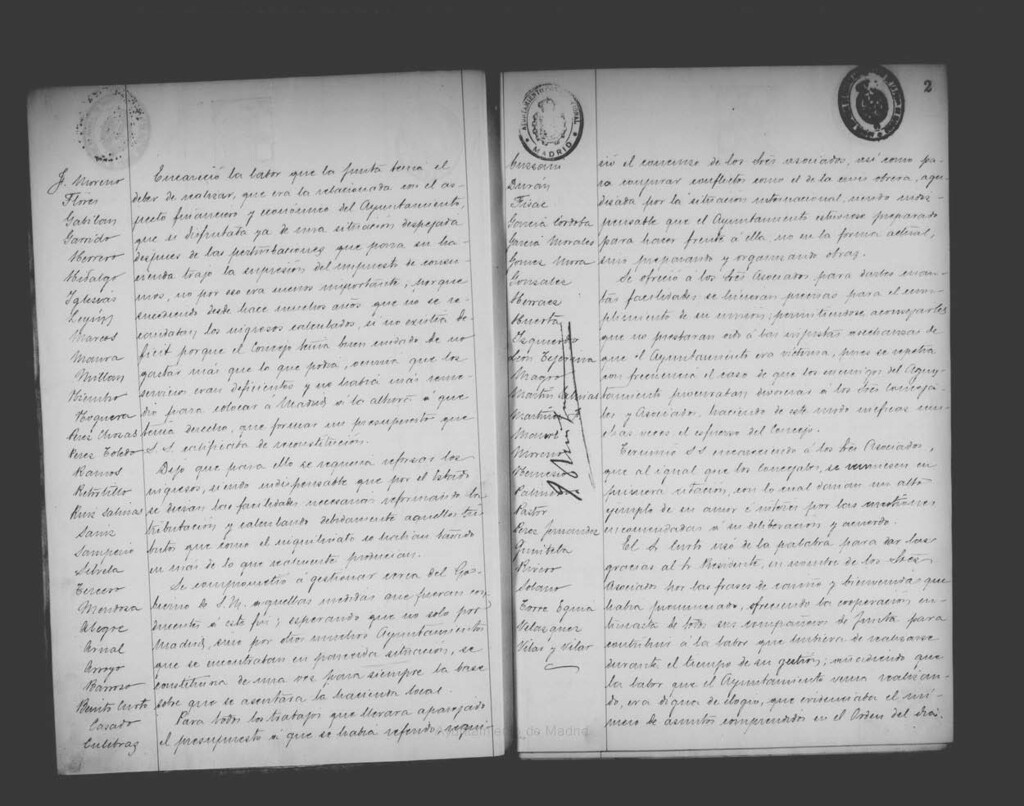 J. Moreno
Flores
Gabilan
Garrido
Herrero
Hidalgo
Iglesias
Marcos
Maura
Millan
Noguera
Perez Toledo
Ramos
Retortillo
Ruiz Salinas
Sainz
Silvela
Tercero
Mendoza
Alegre
Arnal
Arroyo
Barroso
Benito Curto
Casado
Culebras
Encareció la labor que la Junta tenía el
deber de realizar, que era la relacionada con el as-
pecto financiero y económico del Ayuntamiento,
que si disfrutaba ya de una situación despejada
despues de las perturbaciones que para su ha-
cienda trajo la supresión del impuesto de consu-
mos, no por eso era menos importante, porque
sucediendo desde hace muchos años que no se re-
caudaban los ingresos calculados, si no existía de-
ficit porque el Concejo tenía buen cuidado de no
gastar más que lo que podía, ocurría que los
servicios eran deficientes y no había más reme-
dio para colocar á Madrid á la altura á que
tenía derecho, que formar un presupuesto que
S. S. calificaba de reconstitución.
Dijo que para ello se requería reforzar los
ingresos, siendo indispensable que por el Estado
se dieran las facilidades necesarias reformando la
tributación y calculando debidamente aquellos tri-
butos que como el inquilinato se habían tasado
en más de lo que realmente producían.
Se comprometió á gestionar cerca del Go-
bierno de S. M. aquellas medidas que fueran con-
ducentes á este fin; esperando que no solo por
Madrid, sino por otros muchos Ayuntamientos
que se encontraban en parecida situación, se
constituiría de una vez para siempre la base
sobre que se asentara la hacienda local.
Para todos los trabajos que llevara aparejado
el presupuesto á que se había referido, requi-
AYUNTAMIENTO
MADRID
2
Durán
Frisac
García Cordoba
García Morales
Gomez Mora
Gonzalez
Herraez
Huerta
Izquierdo
León Tejerina
Magro
Martin Salinas
Martin
Moreno
Nemesio
Palmer
Pastor
Perez Fernandez
Rivero
Solano
Torre Eguia
Velazquez
Vilas y Vilar
rió el concurso de los Sres asociados, así como pa-
ra conjurar conflictos como el de la crisis obrera, agu-
dizada por la situación internacional, siendo indis-
pensable que el Ayuntamiento estuviese preparado
para hacer frente á ella, no en la forma actual,
sino preparando y organizando obras.
Se ofreció á los Sres Asociados para darles cuan-
tas facilidades se hicieran precisas para el cum-
plimiento de su mision, permitiéndose aconsejarles
que no prestaran oido á las injustas asechanzas de
que el Ayuntamiento era victima, pues se repetía
con frecuencia el caso de que los enemigos del Ayun-
tamiento procuraban divorciar á los Sres Conceja-
les y Asociados, haciendo de este modo ineficaz mu-
chas veces el esfuerzo del Concejo.
Terminó S. S. encareciendo á los Sres Asociados,
que al igual que los Concejales, se reuniesen en
primera citación, con lo cual darían un alto
ejemplo de su amor é interés por las cuestiones
encomendadas á su deliberación y acuerdo.
El Sr Curto usó de la palabra para dar las
gracias al Sr Presidente, en nombre de los Sres
Asociados por las frases de cariño y bienvenida que
había pronunciado, ofreciendo la cooperación en-
tusiasta de todos sus compañeros de Junta para
contribuir á la labor que hubiera de realizarse
durante el tiempo de su gestión; añadiendo que
la labor que el Ayuntamiento venía realizan-
do, era digna de elogio, que evidenciaba el nú-
mero de asuntos comprendidos en el Orden del día.
Ayuntamiento de Madrid